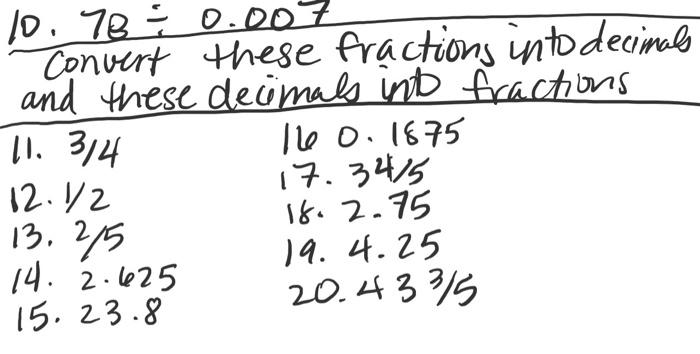 10. 78 ÷ 0.007
Convert these fractions into decimals
and these decimals into fractions
11. 3/4
12. 1/2
13. 2/5
14. 2.625
15. 23.8
16 0.1875
17. 3 4/5
18. 2.75
19. 4.25
20. 43 3/5